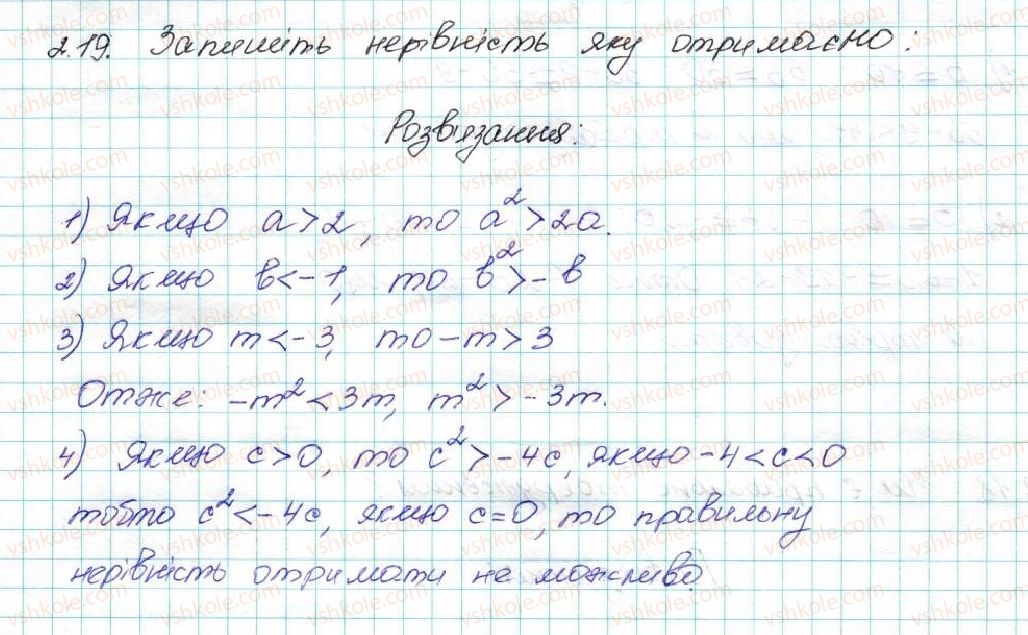 2.19. Запишіть нерівність яку отримаємо:
Розв'язання:
1) Якщо a>2, то a²>2a.
2) Якщо в<-1, то в²>-в
3) Якщо m<-3, то -m>3
Отже: -m²<3m, m²>-3m.
4) Якщо c>0, то c²>-4c, якщо -4<c<0
тобто c²<-4c, якщо c=0, то правильну
нерівність отримати не можливо